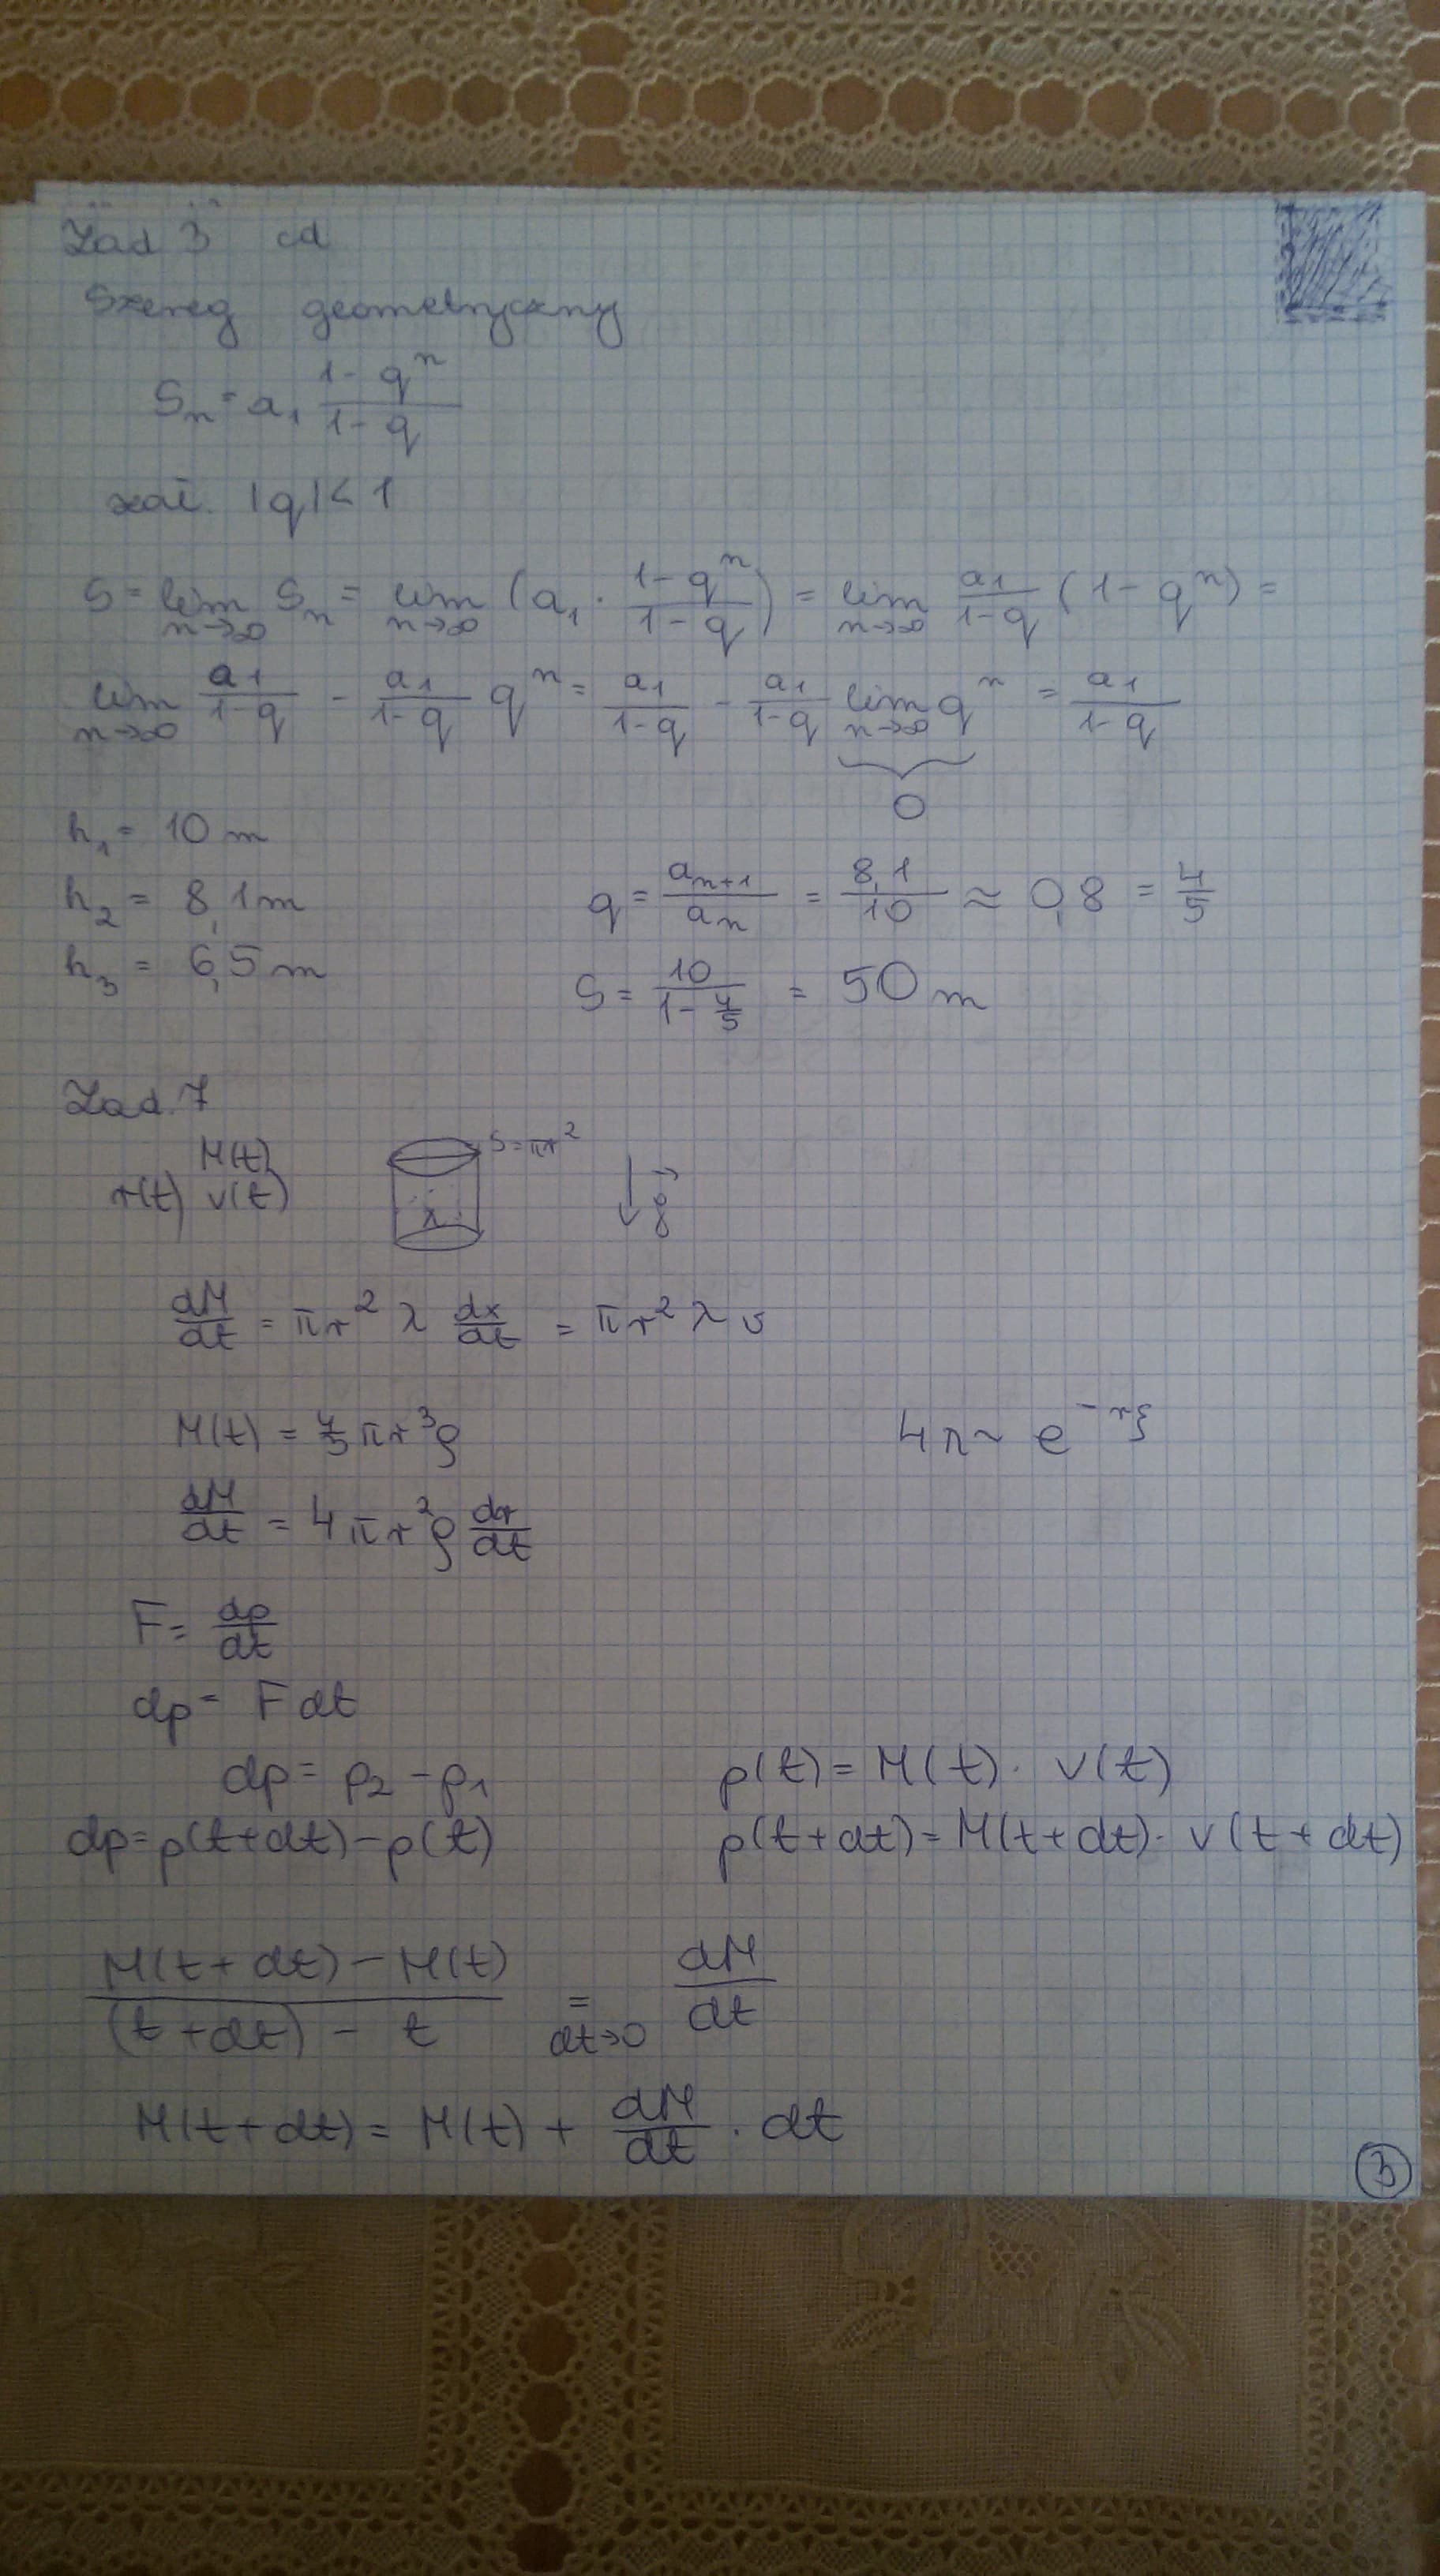 Zad 3 cd
Szereg geometryczny
Sₙ = a₁ (1-qⁿ)/(1-q)
zał. |q| < 1
S = lim_{n→∞} Sₙ = lim_{n→∞} (a₁ · (1-qⁿ)/(1-q)) = lim_{n→∞} a₁/(1-q) (1-qⁿ) =
lim_{n→∞} a₁/(1-q) - a₁/(1-q) qⁿ = a₁/(1-q) - a₁/(1-q) lim_{n→∞} qⁿ = a₁/(1-q)
0
h₁ = 10 m
h₂ = 8,1 m
q = aₙ₊₁/aₙ = 8,1/10 ≈ 0,8 = 4/5
h₃ = 6,5 m
S = 10/(1-4/5) = 50 m
Zad. 7
M(t)
r(t) v(t)
S=πr²
λ
g⃗
dM/dt = πr² λ dx/dt = πr² λ v
M(t) = 4/3 πr³ρ
4π~ e^{-r}
dM/dt = 4πr²ρ dr/dt
F = dp/dt
dp = F dt
dp = p₂ - p₁
p(t) = M(t) · v(t)
dp = p(t+dt) - p(t)
p(t+dt) = M(t+dt) · v(t+dt)
(M(t+dt) - M(t))/((t+dt) - t) =_{dt→0} dM/dt
M(t+dt) = M(t) + dM/dt · dt
3